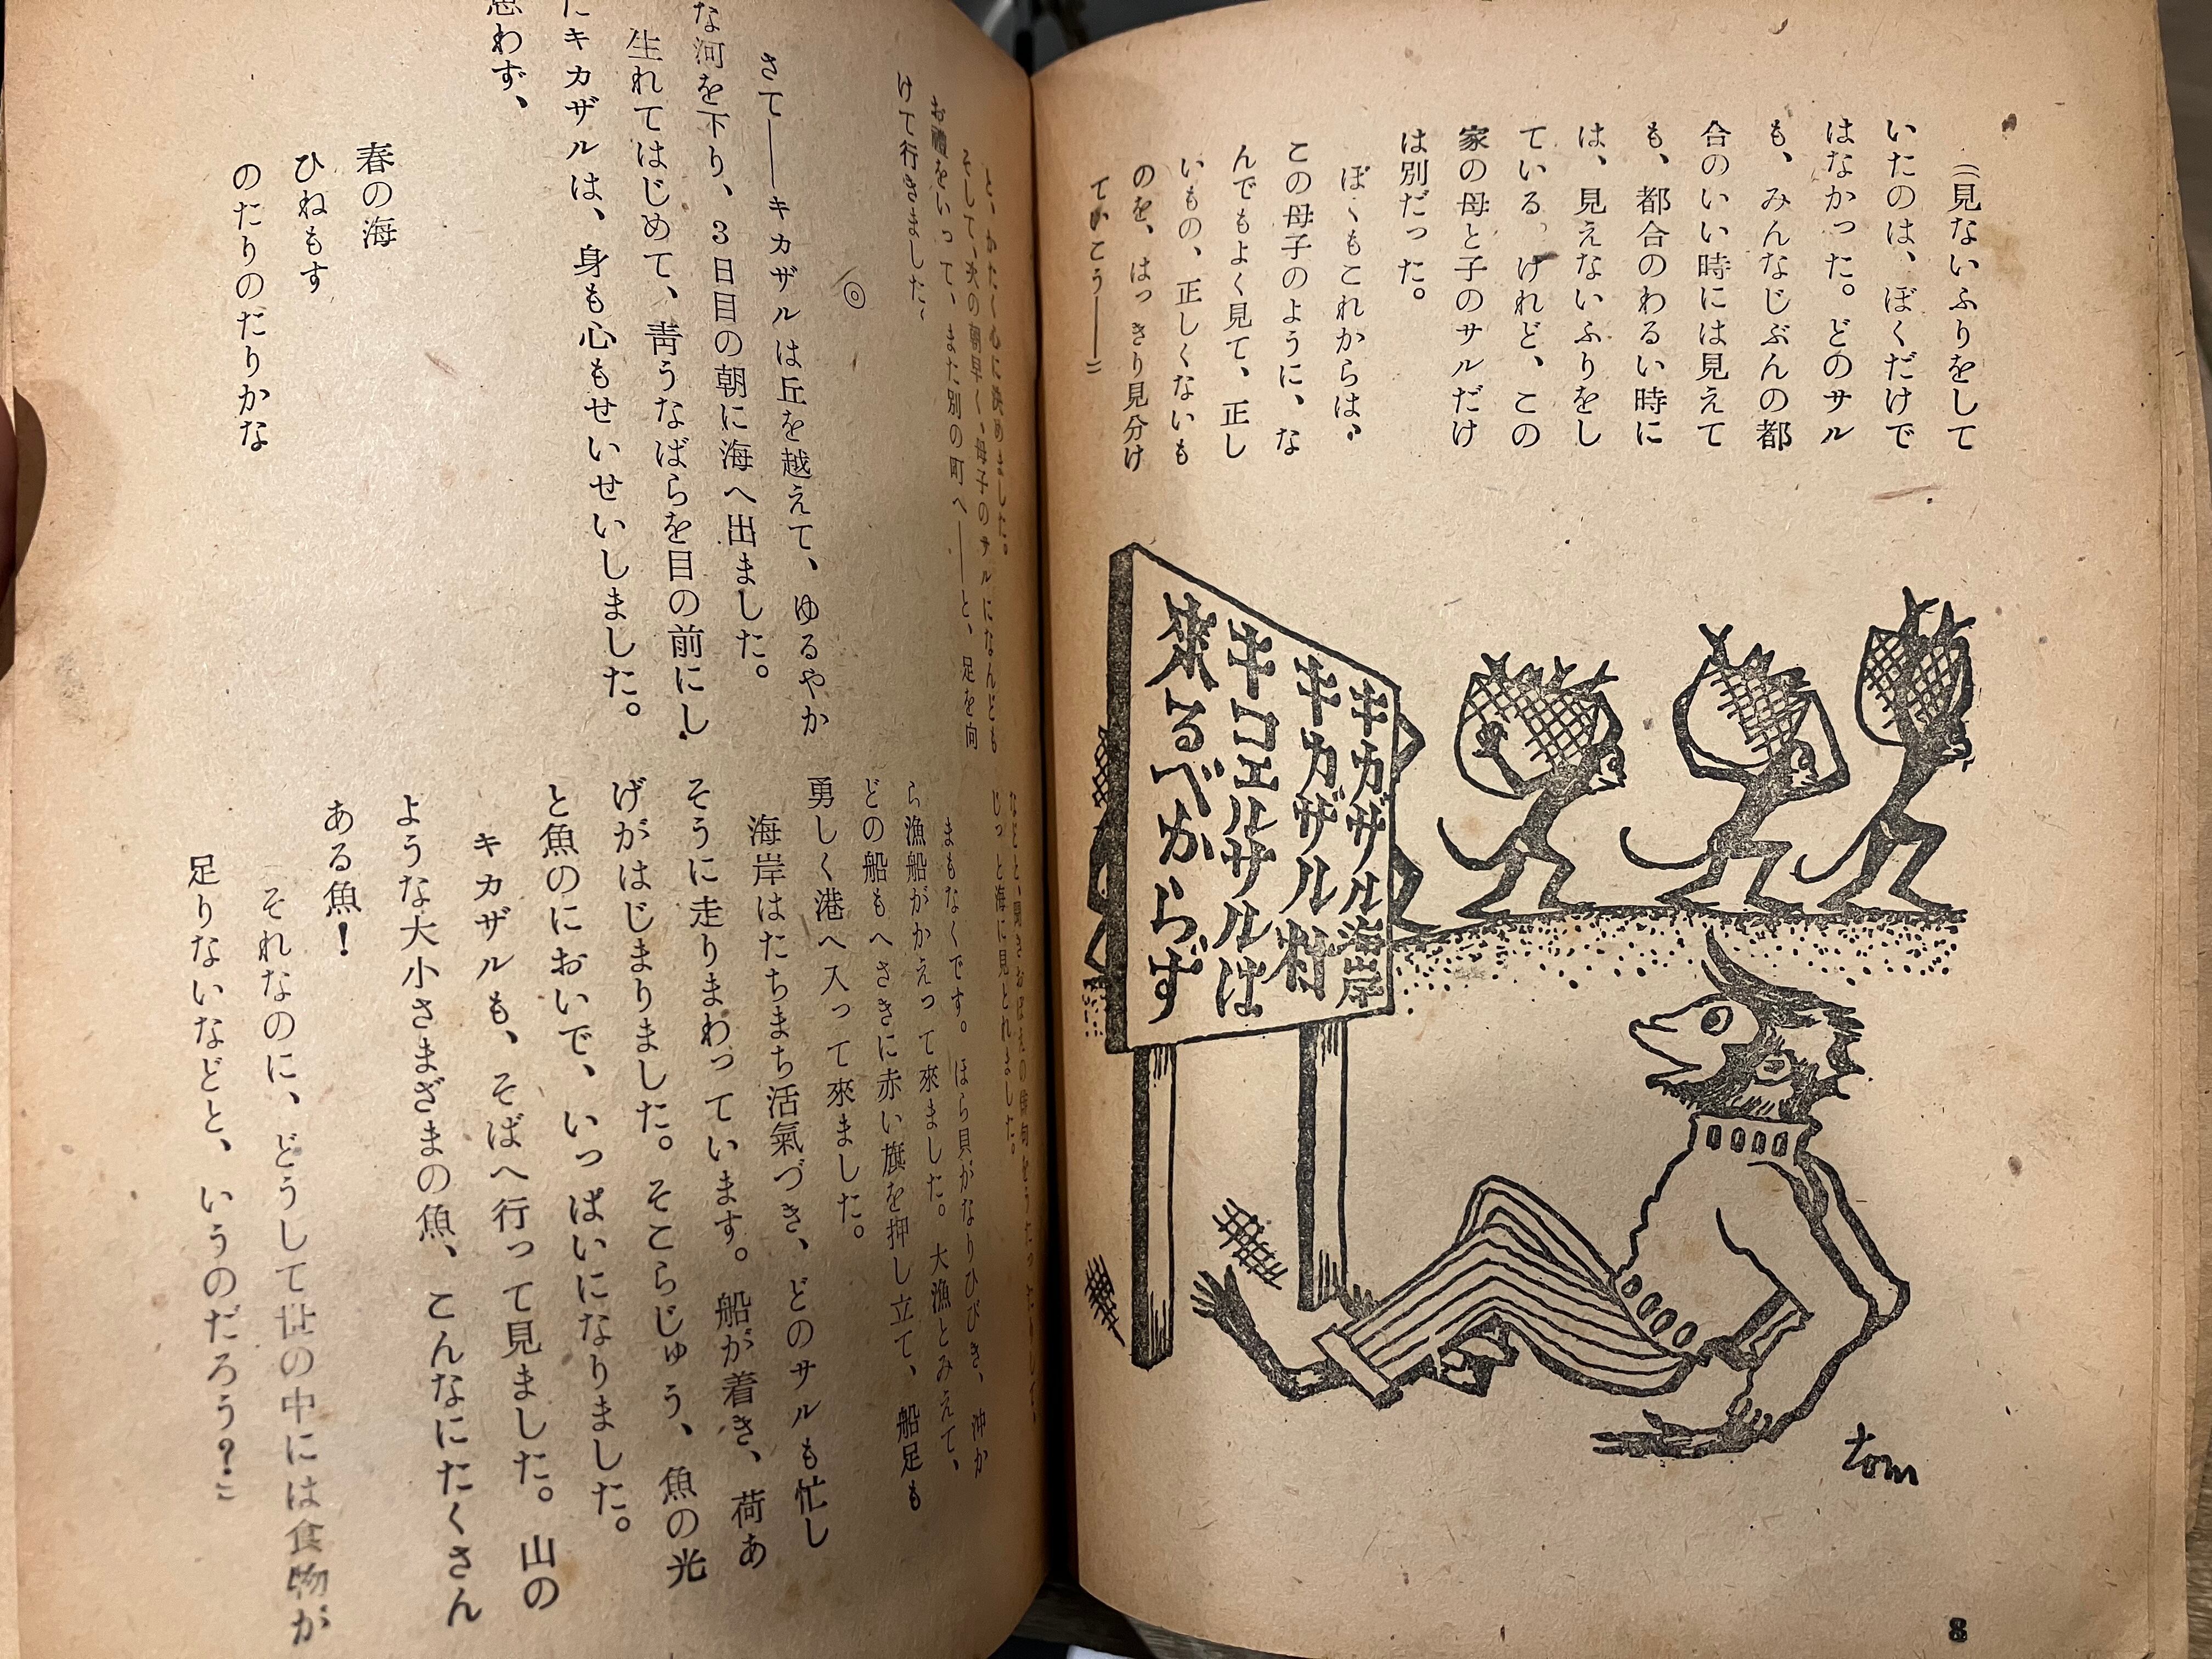 (見ないふりをして
いたのは、ぼくだけで
はなかった。どのサル
も、みんなじぶんの都
合のいい時には見えて
も、都合のわるい時に
は、見えないふりをし
ている。けれど、この
家の母と子のサルだけ
は別だった。
ぼくもこれからは、
この母子のように、な
んでもよく見て、正し
いもの、正しくないも
のを、はっきり見分け
ていこう――)
キカザル海岸
キカザル村
キコエルサルは
來るべからず
tom
8
と、かたく心に決めました。
そして、次の朝早く、母子のサルになんども
お禮をいって、また別の町へ――と、足を向
けて行きました。
◎
さて――キカザルは丘を越えて、ゆるやか
な河を下り、3日目の朝に海へ出ました。
生れてはじめて、靑うなばらを目の前にし
たキカザルは、身も心もせいせいしました。
思わず、
春の海
ひねもす
のたりのたりかな
などと、聞きおぼえの俳句をうたったりして、
じっと海に見とれました。
まもなくです。ほら貝がなりひびき、沖か
ら漁船がかえって來ました。大漁とみえて、
どの船もへさきに赤い旗を押し立て、船足も
勇しく港へ入って來ました。
海岸はたちまち活氣づき、どのサルも忙し
そうに走りまわっています。船が着き、荷あ
げがはじまりました。そこらじゅう、魚の光
と魚のにおいで、いっぱいになりました。
キカザルも、そばへ行って見ました。山の
ような大小さまざまの魚、こんなにたくさん
ある魚!
それなのに、どうして世の中には食物が
足りないなどと、いうのだろう?)